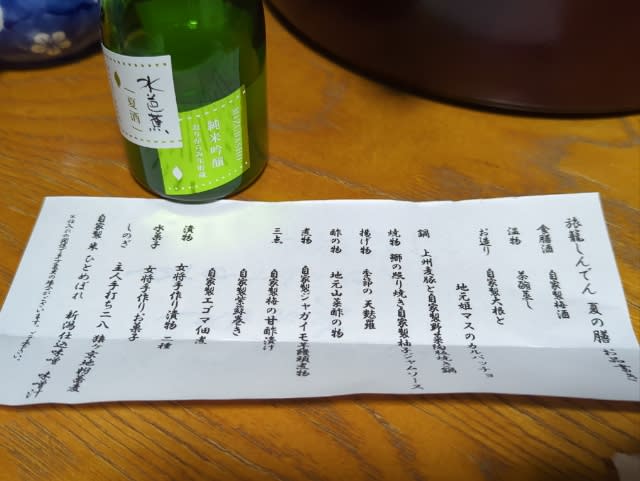 水芭蕉
夏酒
純米吟醸
MIZUBASHO
旅籠しんでん 夏の膳 お品書き
食膳酒 自家製梅酒
温物 茶碗蒸し
お造り 自家製大根と
地元姫マスのカルパッチョ
鍋 上州麦豚と自家製野菜
焼物 鰤の照り焼き自家製柚子ジャムソース
揚げ物 季節の天麩羅
酢の物 地元山菜酢の物
煮物 自家製ジャガイモ芋饅頭煮物
三点 自家製梅の甘酢漬け
自家製紫蘇巻き
自家製エゴマ佃煮
漬物 女将手作り漬物 二種
水菓子 女将手作りお菓子
しのぎ 主人手打ち二八
自家製米 ひとめぼれ 新潟仕込味噌